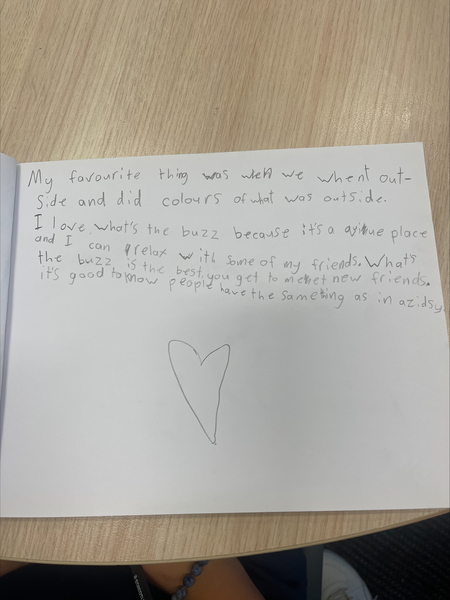 My favourite thing was when we whent out-
side and did colours of what was outside.
I love what's the buzz because it's a place
and I can relax with some of my friends. What's
the buzz is the best you get to meet new friends.
it's good to know people have the same thing as in